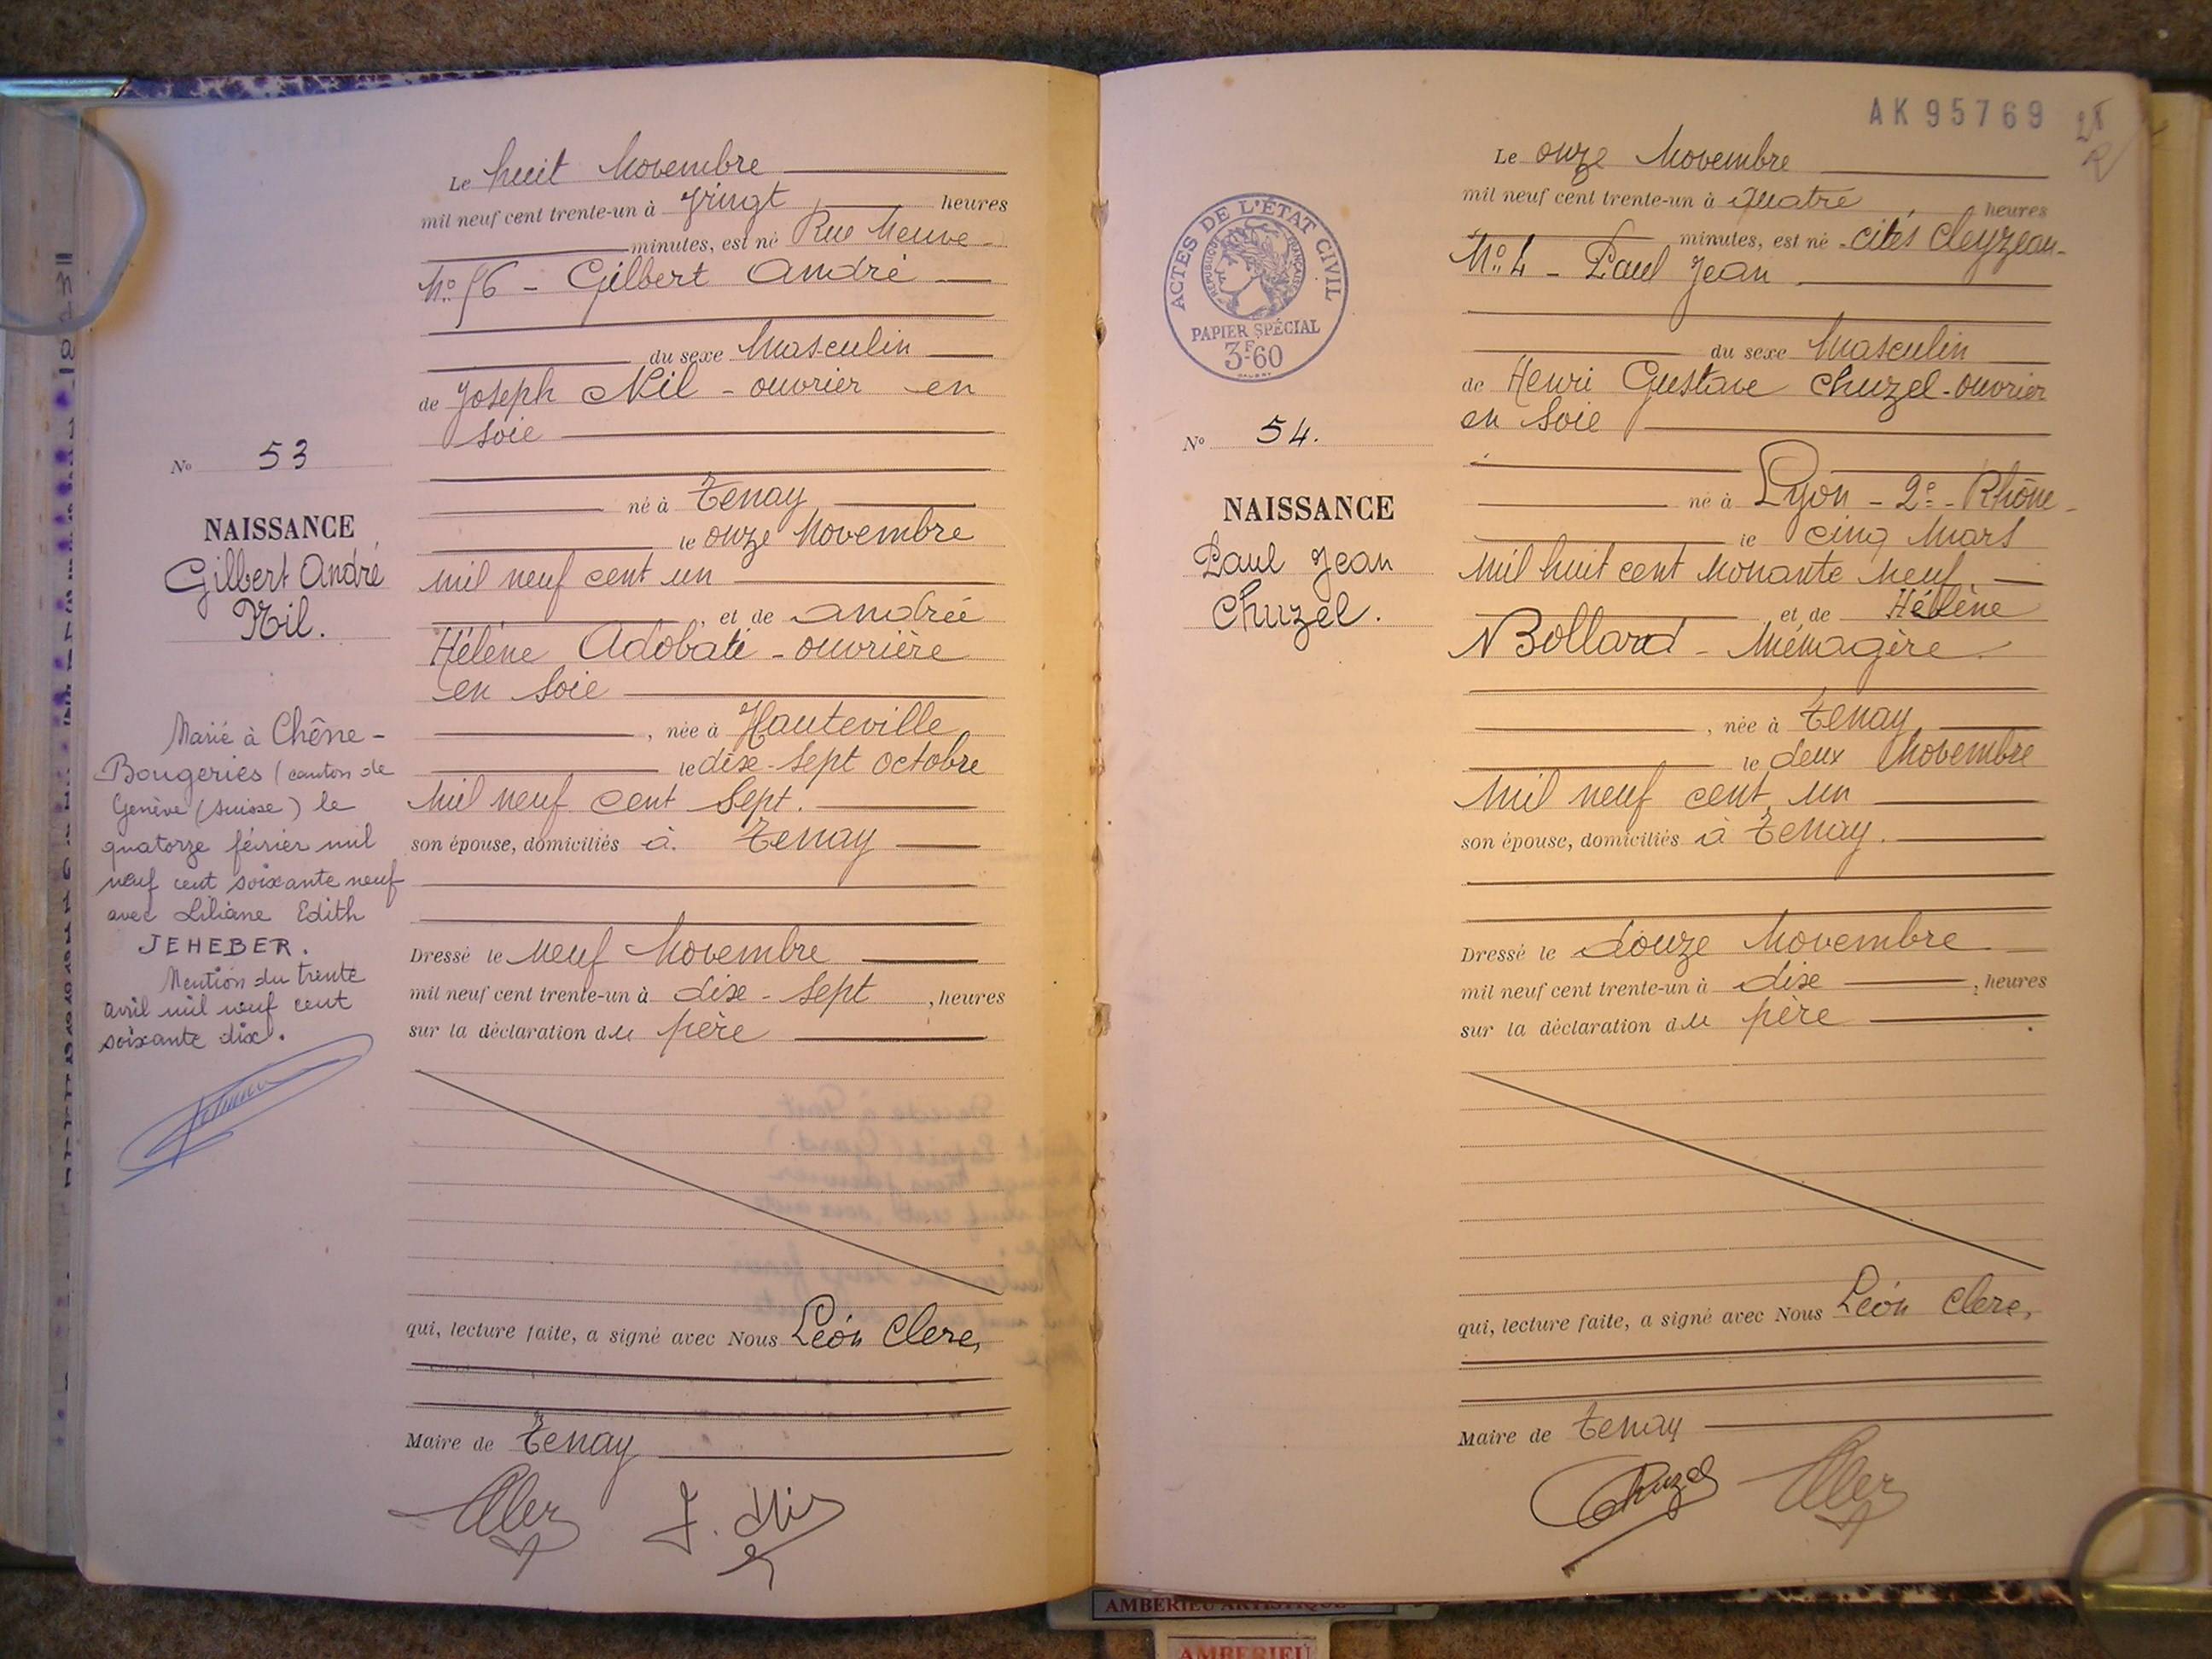 Le huit Novembre
mil neuf cent trente-un à Vingt heures
minutes, est né Rue Neuve
No 56 - Gilbert André
du sexe Masculin
de Joseph Nil - ouvrier en
soie
né à Tenay
le onze Novembre
mil neuf cent un
, et de Andrée
Hélène Adobati - ouvrière
en soie
, née à Hauteville
le dix-sept octobre
mil neuf cent sept.
son épouse, domiciliés à Tenay
Dressé le neuf Novembre
mil neuf cent trente-un à dix-sept, heures
sur la déclaration du père
qui, lecture faite, a signé avec Nous Léon Clerc,
Maire de Tenay
No 53
NAISSANCE
Gilbert André
Nil.
Marié à Chêne-
Bougeries (canton de
Genève (Suisse) le
quatorze février mil
neuf cent soixante neuf
avec Liliane Edith
JEHEBER.
Mention du trente
avril mil neuf cent
soixante dix.
AK 95769
Le onze Novembre
mil neuf cent trente-un à Quatre, heures
minutes, est né cités Cleyzeau
No 4 - Paul Jean
du sexe Masculin
de Henri Gustave Chuzel - ouvrier
en soie
né à Lyon - 2e - Rhône
le cinq Mars
mil huit cent nonante neuf.
et de Hélène
Bollard - Ménagère.
, née à Tenay
le deux Novembre
mil neuf cent un
son épouse, domiciliés à Tenay.
Dressé le douze Novembre
mil neuf cent trente-un à dix, heures
sur la déclaration du père
qui, lecture faite, a signé avec Nous Léon Clerc,
Maire de Tenay
Chuzel
ACTES DE L'ÉTAT CIVIL
RÉPUBLIQUE FRANÇAISE
PAPIER SPÉCIAL
3F60
No 54.
NAISSANCE
Paul Jean
Chuzel.
AMBERIEU ARTISTIQUE
AMBERIEU